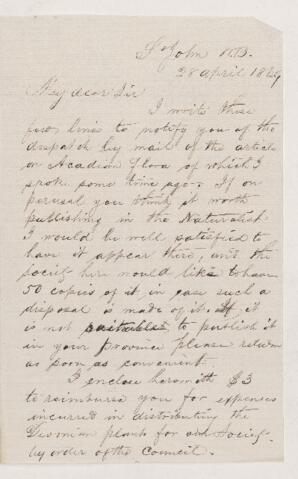 St John N.B.
28 April 1869
My dear Sir
I write these
few lines to notify you of the
despatch by mail of the article
on Acadian Flora of which I
spoke some time ago. If on
perusal you think it worth
publishing in the Naturalist
I would be well satisfied to
have it appear there, and the
Society here would like to have
50 copies of it in case such a
disposal is made of it. If it
is not suitable to publish it
in your province please return
as soon as convenient.
I enclose herewith $3
to reimburse you for expenses
incurred in distributing the
Devonian plants for our Society
by order of the Council.